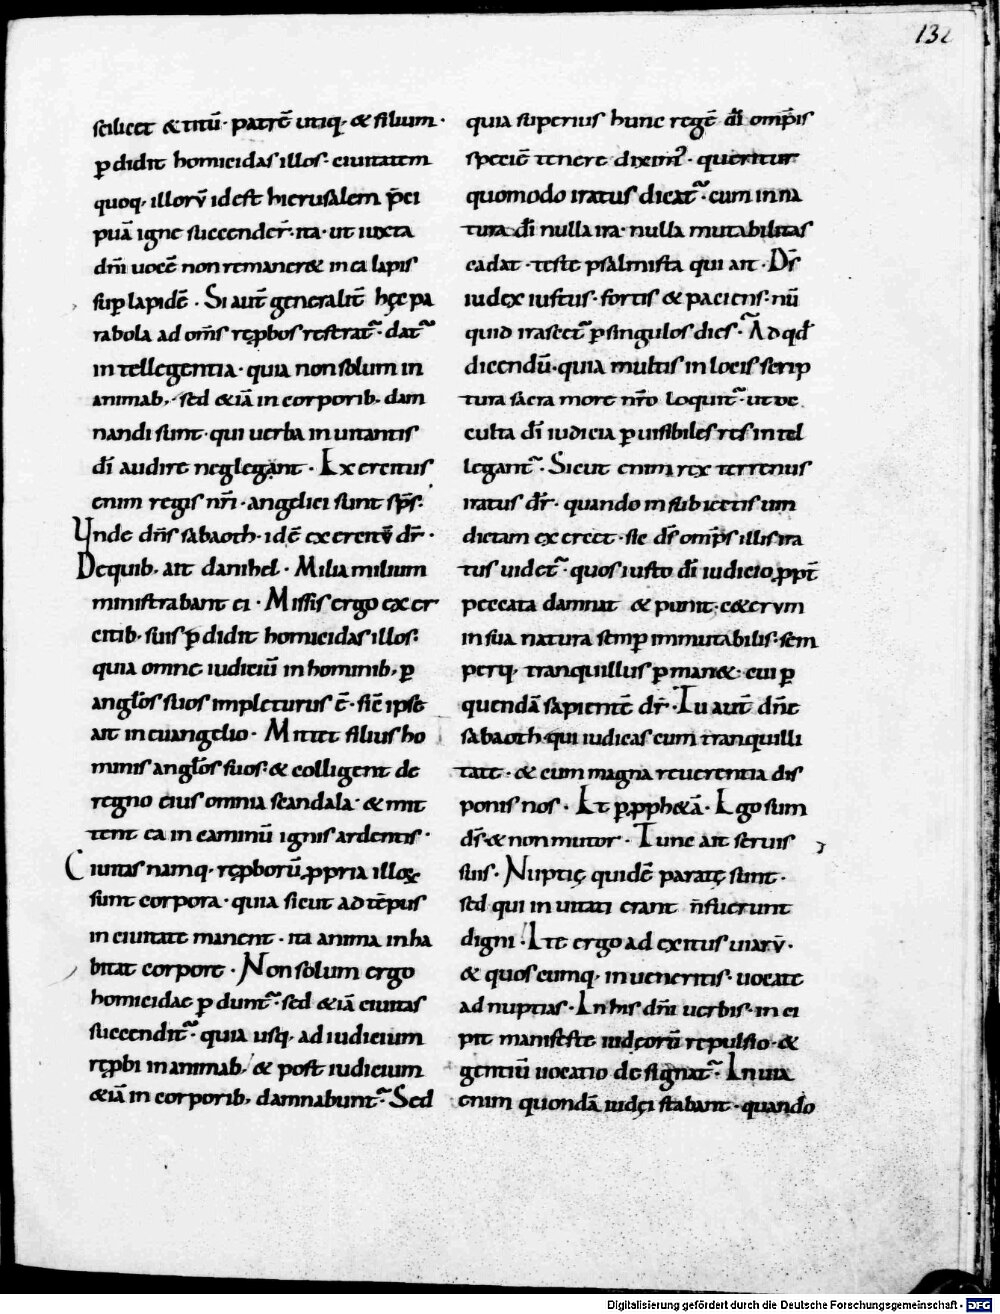 132
scilicet &titū· patrē utiq;· & filium·
p̄didit homicidas illos· ciuitatem
quoq;· illorū id est hierusalem p̄ci
puā igne succender̄· ita· ut iuxta
dn̄i uocē non remaner& in ea lapis
sup lapidē· Si aut̄ generalit̄ hęc pa
rabola ad om̄s rep̱bos restrat̄· dat̄
intellegentia· quia non solum in
animab;· sed &iā in corporib; dam
nandi sunt· qui uerba inuitantis
dī audire neglegant· Exercitus
enim regis nr̄i· angelici sunt sp̄s·
Unde dn̄s sabaoth· idē exercituū dr̄·
De quib; ait danihel· Milia milium
ministrabant ei· Missis ergo exer
citib; suis p̄didit homicidas illos·
quia omne iudiciū in hominib; ꝑ
anglos suos impleturus ē· sic̄ ipse
ait in euangelio· Mittet filius ho
minis anglos suos· & colligent de
regno eius omnia scandala· & mit
tent ea in caminū ignis ardentis·
Ciuitas namq; rep̱borū ꝓpria illoꝝ
sunt corpora· quia sicut ad tēpus
in ciuitate manent· ita anima inha
bitat corpore· Non solum ergo
homicidae ꝑdunt̄· sed &iā ciuitas
succendit̄· quia usq; ad iudicium
rep̱bi in animab;· & post iudicium
&iā in corporib; damnabunt̄· Sed
quia superius hunc regē dī omp̄is
speciē tenere dixim᾽· queritur
quomodo iratus dicat̄· cum in na
tura dī nulla ira· nulla mutabilitas
cadat· teste psalmista qui ait· Dš
iudex iustus· fortis & paciens· nū
quid irascet̄ ꝑ singulos dies· Ad qđ
dicendū· quia multis in locis scrip
tura sacra more nr̄o loquit̄· ut oc
culta dī iudicia ꝑ uisibiles res intel
legant̄· Sicut enim rex terrenus
iratus dr̄· quando in subiectis uin
dictam exercet· sic dš omp̄s illis ira
tus uidet̄· quos iusto dī iudicio ꝓpt̄
peccata damnat & punit· ceterum
in sua natura semꝑ immutabilis· sem
perq; tranquillus ꝑman&· cui ꝑ
quendā sapientē dr̄· Tu aut̄ dn̄e
sabaoth qui iudicas cum tranquilli
tate· & cum magna reuerentia dis
ponis nos· Et ꝑ ꝓph&ā· Ego sum
dš & non mutor· Tunc ait seruis
suis· Nuptię quidē paratę sunt·
sed qui inuitati erant n̄ fuerunt
digni· Ite ergo ad exitus uiarū·
& quoscumq; inueneritis· uocate
ad nuptias· In his dn̄i uerbis· in ci
pit manifeste iudęorū repulsio· &
gentiū uocatio designat̄· In uia
enim quondā iudęi stabant· quando
Digitalisierung gefördert durch die Deutsche Forschungsgemeinschaft - DFG